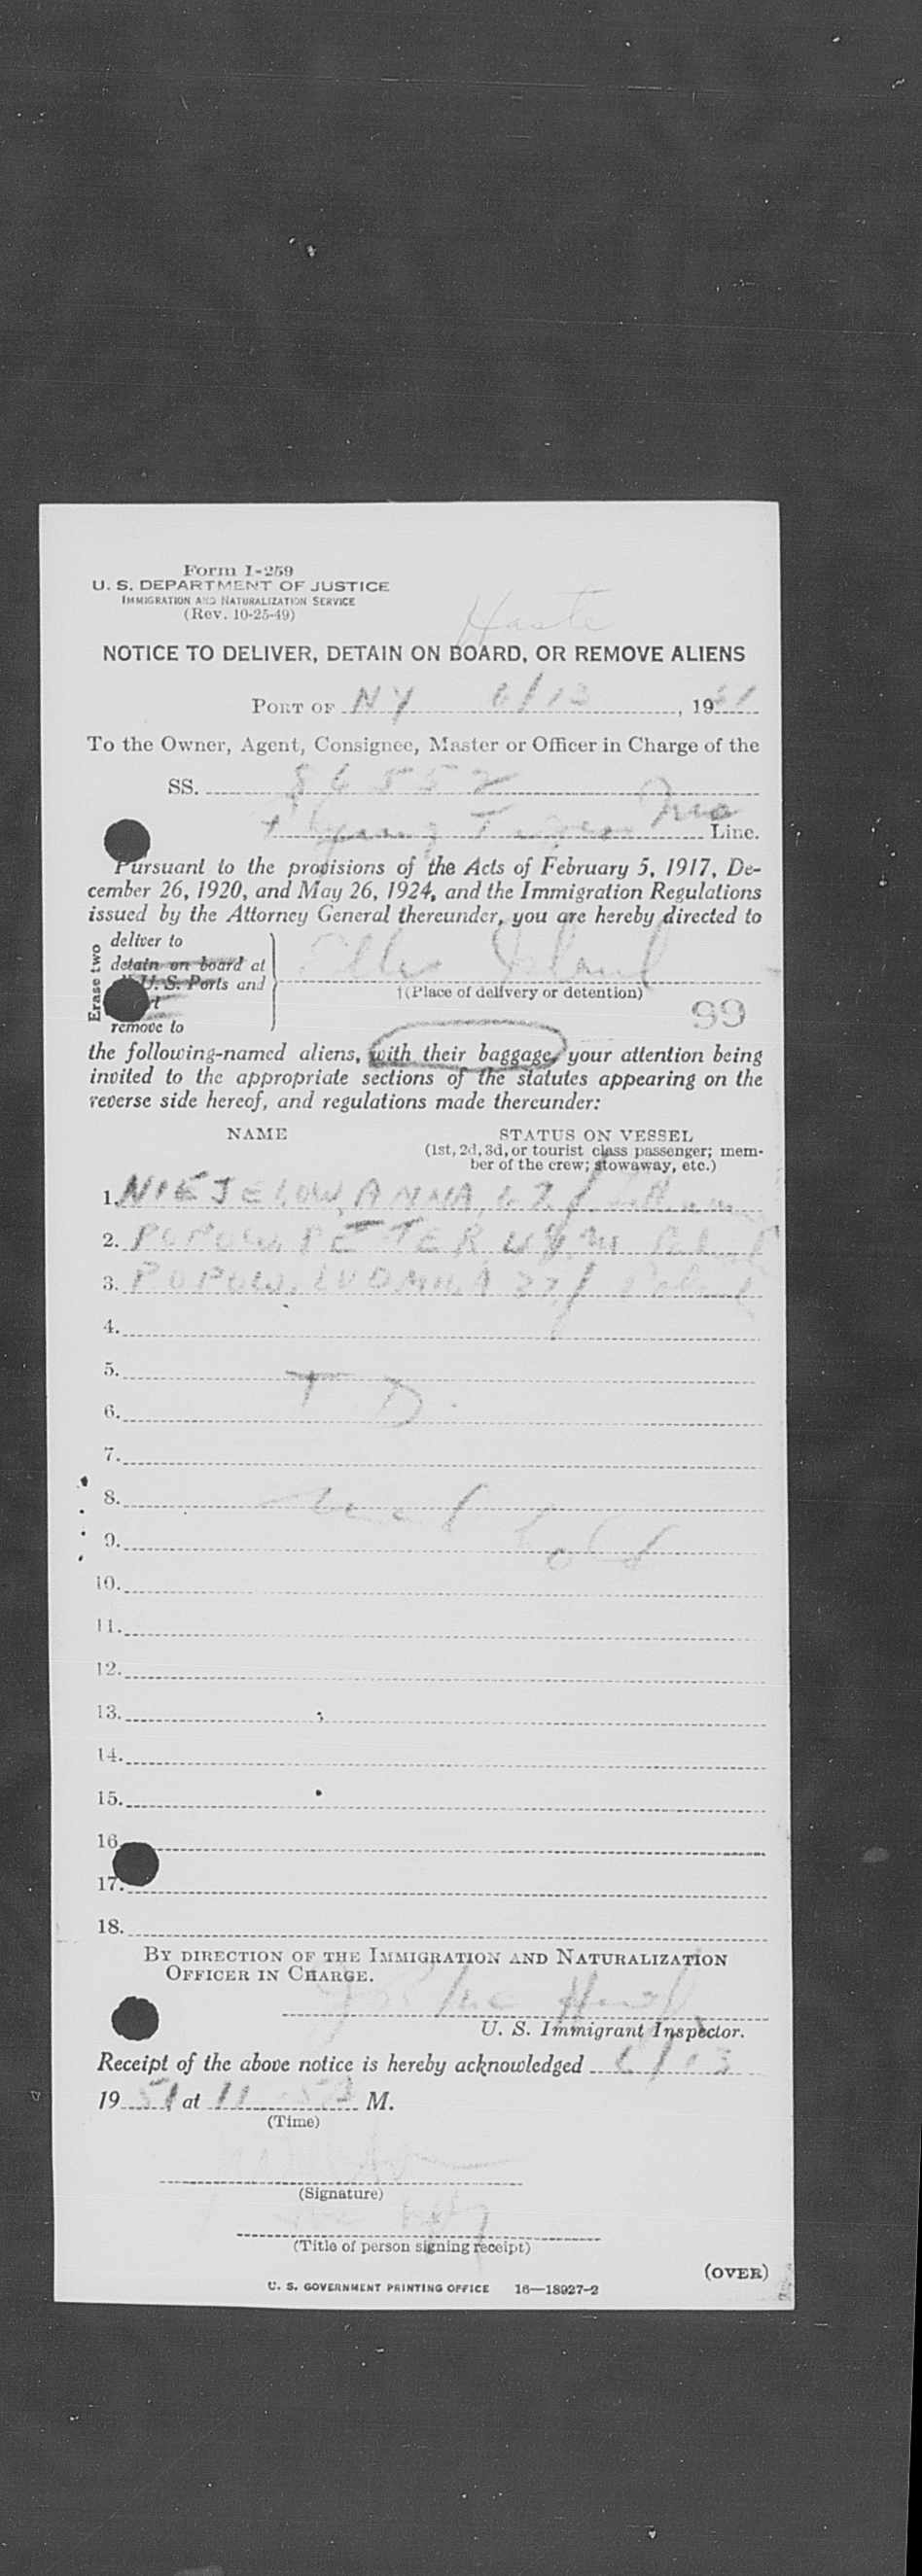 Form I-259
U. S. DEPARTMENT OF JUSTICE
IMMIGRATION AND NATURALIZATION SERVICE
(Rev. 10-25-49)
Haste
NOTICE TO DELIVER, DETAIN ON BOARD, OR REMOVE ALIENS
PORT OF NY 6/13, 1951
To the Owner, Agent, Consignee, Master or Officer in Charge of the
SS. 86552
Flying Tiger Line.
Pursuant to the provisions of the Acts of February 5, 1917, De-
cember 26, 1920, and May 26, 1924, and the Immigration Regulations
issued by the Attorney General thereunder, you are hereby directed to
Erase two
deliver to
detain on board at
U. S. Ports and
remove to
Ellis Island
†(Place of delivery or detention)
99
the following-named aliens, with their baggage, your attention being
invited to the appropriate sections of the statutes appearing on the
reverse side hereof, and regulations made thereunder:
NAME STATUS ON VESSEL
(1st, 2d, 3d, or tourist class passenger; mem-
ber of the crew; stowaway, etc.)
1. NIEJELOW, ANNA
2. POPOW, PETER
3. POPOW, LUDMILA
4.
5. T D.
6.
7.
8.
9.
10.
11.
12.
13.
14.
15.
16.
17.
18.
BY DIRECTION OF THE IMMIGRATION AND NATURALIZATION
OFFICER IN CHARGE.
U. S. Immigrant Inspector.
Receipt of the above notice is hereby acknowledged 6/13
1951 at 11 M.
(Time)
(Signature)
(Title of person signing receipt)
(OVER)
U. S. GOVERNMENT PRINTING OFFICE 16—18927-2